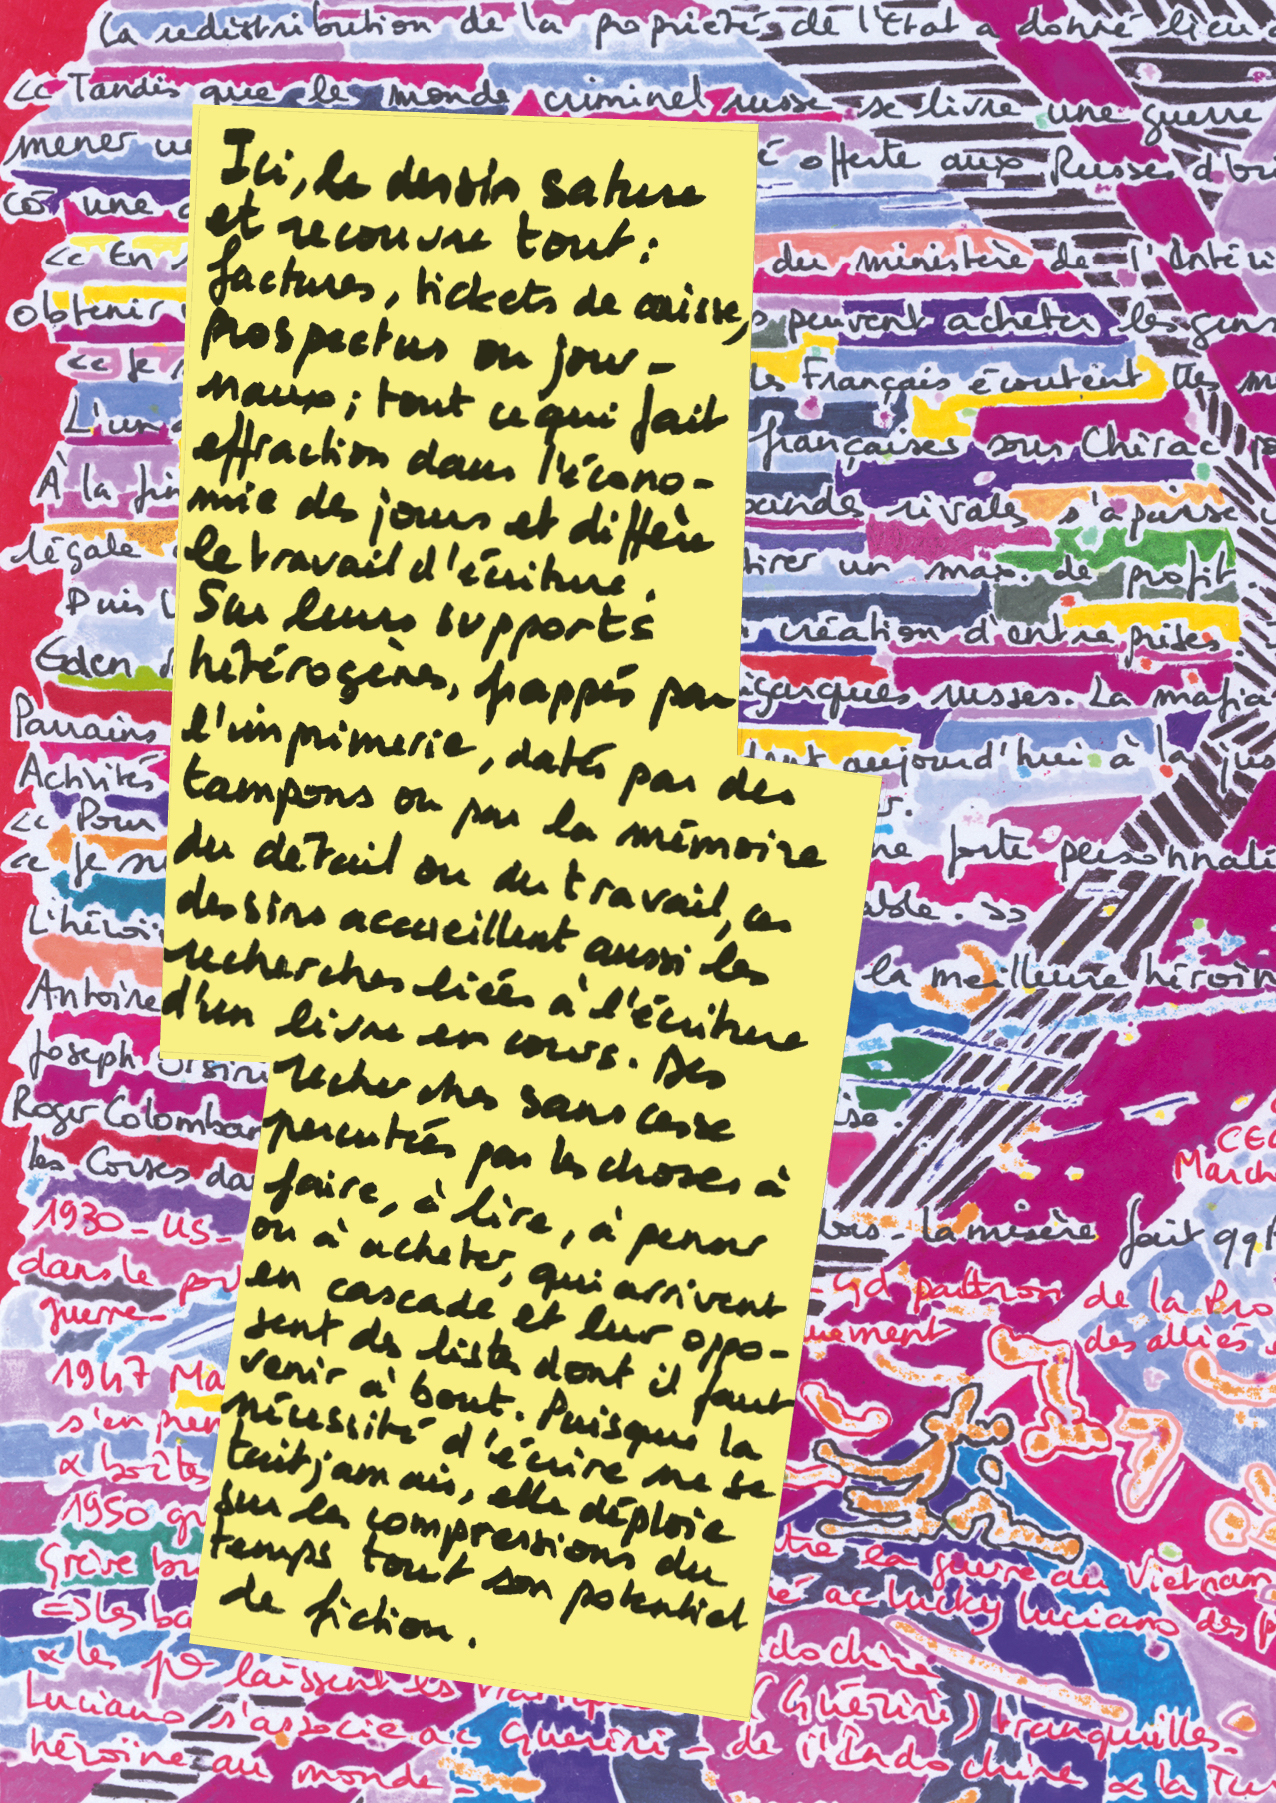 La redistribution de la propriété de l'Etat a donné lieu
<< Tandis que le monde criminel russe se livre une guerre
mener
é offerte aux Russes d'
cõ une
<< En
du ministère de l'Intéri
obtenir
peuvent acheter les gens
<< Je
les Français écoutent les
L'un
françaises sous Chirac
À la fin
bande rivales s'apaise
légale
tirer un max. de profit.
Puis
création d'entreprises
Eden
garques russes. La mafia
Parrains
ent aujourd'hui à la jus
Activités
<< Pour
ne forte personnalit
<< Je su
able. >>
L'héroï
la meilleure héroïn
Antoine
Joseph Orsini
Roger Colomban
ise.
les Corses da
CEC
March
1930 - US -
la misère fait qq
dans le
- Gd patron de la Pro
guerre -
quement
des alliés
1947 Ma
s'en pren
& boîtes
1950
Grève
la guerre au Vietnam
=> les
é ac Lucky Luciano des
& les po laissent les
dochine
(Guérini) tranquilles -
Luciano s'associe ac Guérini - de l'Indochine & la Tur
héroïne au monde -
Ici, le dessin sature
et recouvre tout :
factures, tickets de caisse,
prospectus ou jour-
naux ; tout ce qui fait
effraction dans l'écono-
mie des jours et diffère
le travail d'écriture.
Sur leurs supports
hétérogènes, frappés par
l'imprimerie, datés par des
tampons ou par la mémoire
du détail ou du travail, ces
dessins accueillent aussi les
recherches liées à l'écriture
d'un livre en cours. Des
recherches sans cesse
percutées par les choses à
faire, à lire, à penser
ou à acheter, qui arrivent
en cascade et leur oppo-
sent des listes dont il faut
venir à bout. Puisque la
nécessité d'écrire ne se
tait jamais, elle déploie
sur les compressions du
temps tout son potentiel
de fiction.